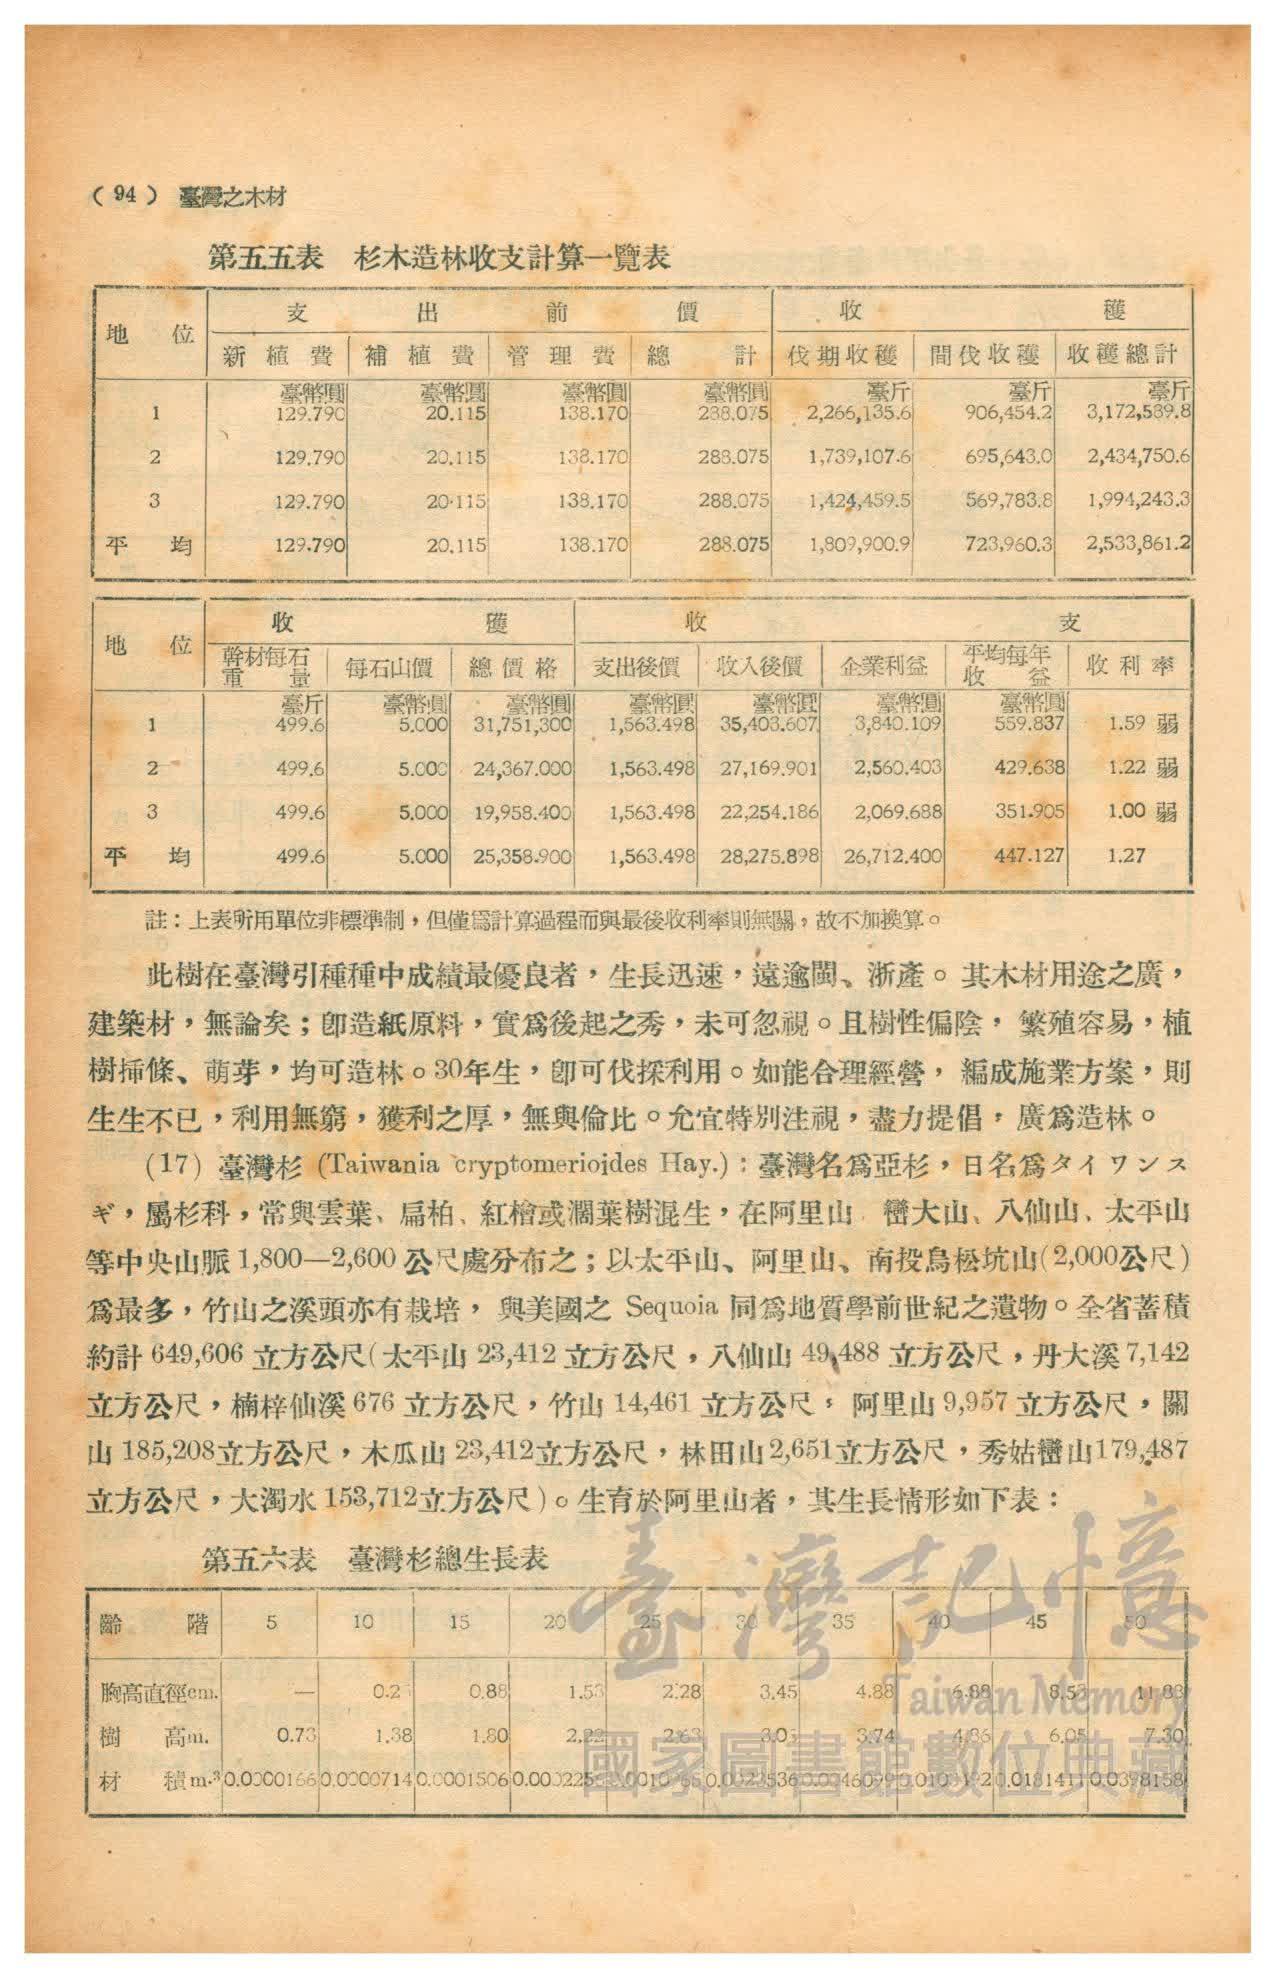 ( 94 ) 臺灣之木材
第五五表 杉木造林收支計算一覽表
地 位 支 出 前 價 收 穫
新植費 補植費 管理費 總計 伐期收穫 間伐收穫 收穫總計
臺幣圓 臺幣圓 臺幣圓 臺幣圓 臺斤 臺斤 臺斤
1 129.790 20.115 138.170 288.075 2,266,135.6 906,454.2 3,172,589.8
2 129.790 20.115 138.170 288.075 1,739,107.6 695,643.0 2,434,750.6
3 129.790 20·115 138.170 288.075 1,424,459.5 569,783.8 1,994,243.3
平均 129.790 20.115 138.170 288.075 1,809,900.9 723,960.3 2,533,861.2
地 位 收 穫 收 支
幹材每石重量 每石山價 總價格 支出後價 收入後價 企業利益 平均每年收益 收利率
臺斤 臺幣圓 臺幣圓 臺幣圓 臺幣圓 臺幣圓 臺幣圓
1 499.6 5.000 31,751,300 1,563.498 35,403.607 3,840.109 559.837 1.59 弱
2 499.6 5.000 24,367.000 1,563.498 27,169.901 2,560.403 429.638 1.22 弱
3 499.6 5.000 19,958.400 1,563.498 22,254.186 2,069.688 351.905 1.00 弱
平均 499.6 5.000 25,358.900 1,563.498 28,275.898 26,712.400 447.127 1.27
註：上表所用單位非標準制，但僅爲計算過程而與最後收利率則無關，故不加換算。
此樹在臺灣引種種中成績最優良者，生長迅速，遠逾閩、浙產。其木材用途之廣，
建築材，無論矣；卽造紙原料，實爲後起之秀，未可忽視。且樹性偏陰，繁殖容易，植
樹揷條、萌芽，均可造林。30年生，卽可伐採利用。如能合理經營，編成施業方案，則
生生不已，利用無窮，獲利之厚，無與倫比。允宜特別注視，盡力提倡，廣爲造林。
(17) 臺灣杉 (Taiwania cryptomerioides Hay.)：臺灣名爲亞杉，日名爲タイワンス
ギ，屬杉科，常與雲葉、扁柏、紅檜或濶葉樹混生，在阿里山 巒大山、八仙山、太平山
等中央山脈 1,800—2,600 公尺處分布之；以太平山、阿里山、南投鳥松坑山(2,000公尺)
爲最多，竹山之溪頭亦有栽培，與美國之 Sequoia 同爲地質學前世紀之遺物。全省蓄積
約計 649,606 立方公尺(太平山 23,412 立方公尺，八仙山 49,488 立方公尺，丹大溪 7,142
立方公尺，楠梓仙溪 676 立方公尺，竹山 14,461 立方公尺，阿里山 9,957 立方公尺，關
山 185,208立方公尺，木瓜山 23,412立方公尺，林田山 2,651立方公尺，秀姑巒山179,487
立方公尺，大濁水 153,712立方公尺)。生育於阿里山者，其生長情形如下表：
第五六表 臺灣杉總生長表
齡階 5 10 15 20 25 30 35 40 45 50
胸高直徑cm. — 0.2 0.88 1.53 2.28 3.45 4.88 6.88 8.53 11.83
樹高m. 0.73 1.38 1.80 2.22 2.63 3.05 3.74 4.86 6.05 7.30
材積m.³ 0.0000166 0.0000714 0.0001506 0.0181411 0.0398158
臺灣記憶
Taiwan Memory
國家圖書館數位典藏